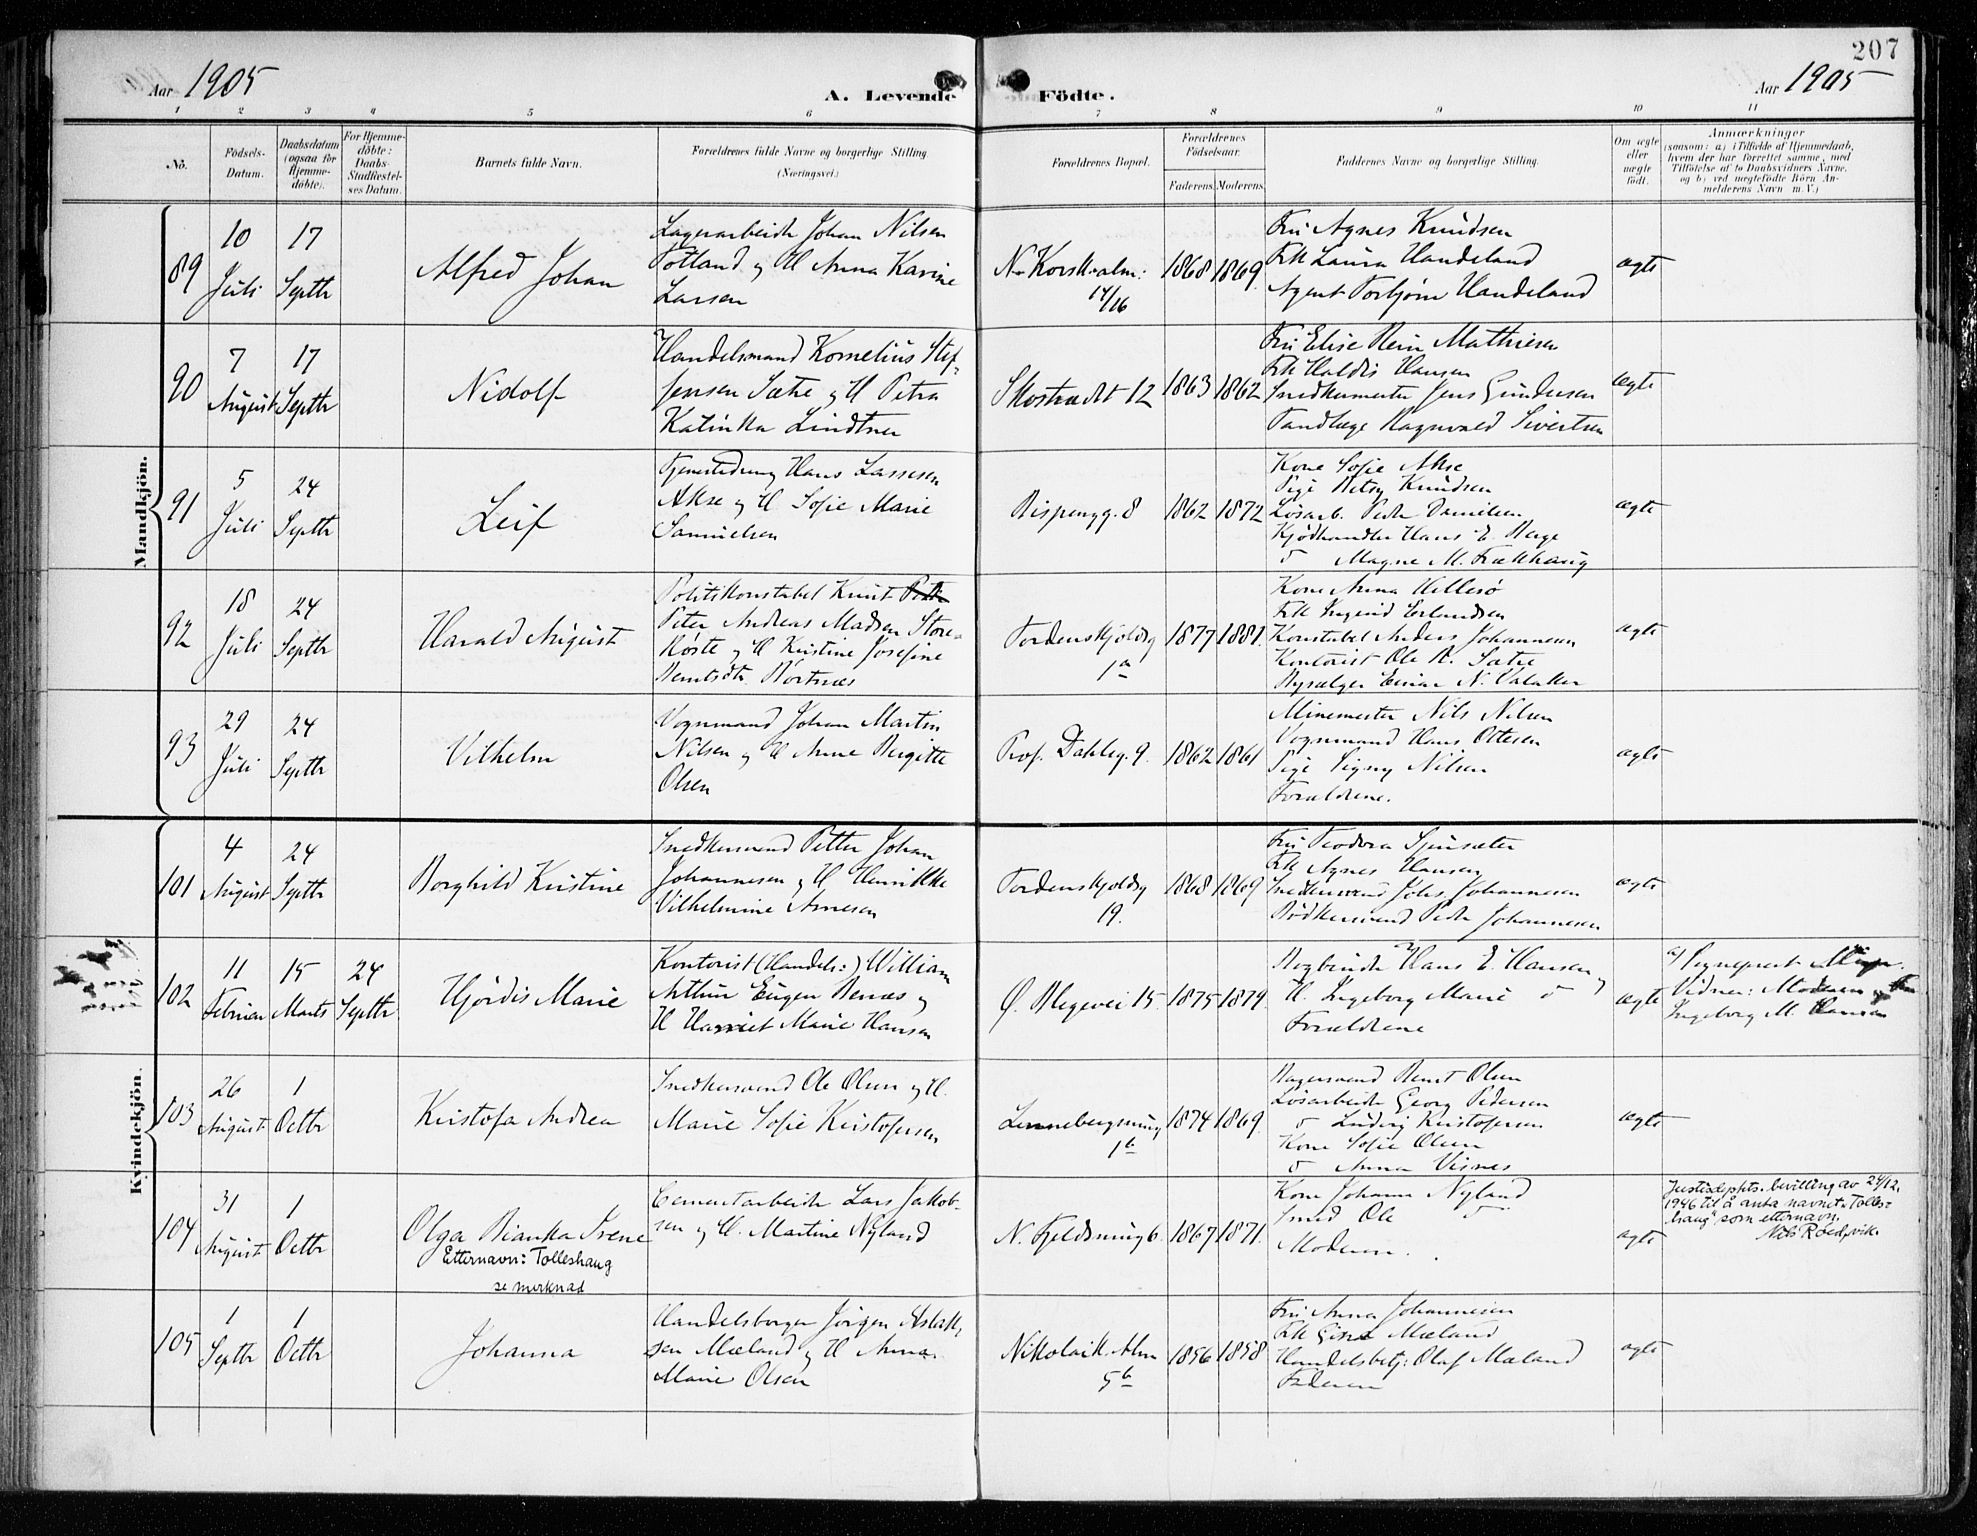 207
Aar 1905
A. Levende Födte.
Aar 1905
1 2 3 4 5 6 7 8 9 10 11
No.
Födsels-Datum.
Daabsdatum (ogsaa for Hjemme-döbte).
For Hjemme-döbte: Daabs-Stadfæstel-ses Datum.
Barnets fulde Navn.
Forældrenes fulde Navne og borgerlige Stilling
(Næringsvei.)
Forældrenes Bopæl.
Forældrenes Födselsaar.
Faderens Moderens
Faddernes Navne og borgerlige Stilling.
Om ægte eller uægte födt.
Anmærkninger
(saasom: a) i Tilfælde af Hjemmedaab,
hvem der har forrettet samme, med
Tilföielse af to Daabsvidners Navne.
og b) ved uægtefödte Börn An-
melderens Navn m. V.)
Mandkjön.
89
10 Juli
17 Septbr
Alfred Johan
Lagerarbeider Johan Nilsen
Totland og H Anna Karine
Larsen
N. Korsk.alm:
14/16
1868 1869.
Fru Agnes Knudsen
Frk Laura Handeland
Agent Torbjørn Handeland
ægte
90
7 August
17 Septbr
Nidolf
Handelsmand Kornelius Stef-
fensen Sætre og H Petra
Katinka Lindtner
Skostrædet 12
1863 1862
Fru Elise Mathiesen
Frk Haldis Hansen
Snedkermester Jens Gundersen
Tandlæge Ragnvald Sivertsen
ægte
91
5 Juli
24 Septbr
Leif
Hans Lassesen
Akse og H Sofie Marie
Samuelsen
Bispengg. 8
1862 1872
Kone Sofie Akse
Pige Betsy Knudsen
Løsarb. Peder Danielsen
Kjødhandler Hans E. Berge
Magne M.
ægte
92
18 Juli
24 Septbr
Harald August
Politikonstabel Knut
Peter Andreas Madsen Store-
Røste og H Kristine Josefine
Berntsdtr.
Tordenskjoldsg
1a
1877 1881.
Kone Anna Hillesø
Frk Ingrid Erlandsen
Konstabel Anders Johannesen
Kontorist Ole B. Sætre
Bysælger Einar N. Valaker
ægte
93
29 Juli
24 Septbr
Vilhelm
Vognmand Johan Martin
Nilsen og H Anne Bergitte
Olsen
Prof. Dahlsg. 9.
1862 1861
Minemester Nils Nilsen
Vognmand Hans Ottesen
Pige Signy Nilsen
Forældrene.
ægte
Kvindekjön.
101
4 August
24 Septbr
Borghild Kristine
Snedkersvend Petter Johan
Johannesen og H Henrikke
Vilhelmine Arnesen
Tordenskjoldsg
19.
1868 1869
Fru Teodora
Frk Agnes Hansen
Snedkersvend Johs Johannesen
Bødkersvend Peder Johannesen
ægte
102
11 Februar
15 Marts
24 Septbr
Hjördis Marie
Kontorist (Handels:) William
Arthur Eugen Bernæs og
H Harriet Marie Hansen
Ø. Blegevei 15.
1875 1879.
Bogbinder Hans E. Hansen og
H. Ingeborg Marie do
Forældrene
ægte
a) Sogneprest
Vidner: Moderen og Fru
Ingeborg M. Hansen
103
26 August
1 Octbr
Kristofa Andrea
Snedkersvend Ole Olsen og H.
Marie Sofie Kristofersen
1b
1874 1869.
Bagersvend Bernt Olsen
Løsarbeider Georg Pedersen
do Ludvig Kristofersen
Kone Sofie Olsen
do Anna Visnes
ægte
104
31 August
1 Octbr
Olga Bianka Irene
Etternavn: Tolleshaug
se merknad
Cementarbeider Lars Jakob-
sen og H. Martine Nyland
N. Fjeldsmug 6.
1867 1871.
Kone Johanna Nyland
Smed Ole do
Moderen.
ægte
Justisdepts. bevilling av 24/12.
1946 til å anta navnet „Tolles-
haug" som etternavn.
105
1 Septbr
1 Octbr
Johanna
Handelsborger Jørgen Aslak-
sen Mæland og H Anna
Marie Olsen
Nikolaik. Alm
5b
1856 1858
Fru Anna Johannesen
Frk Gina Mæland
Handelsbetj: Olaf Mæland
Faderen
ægte